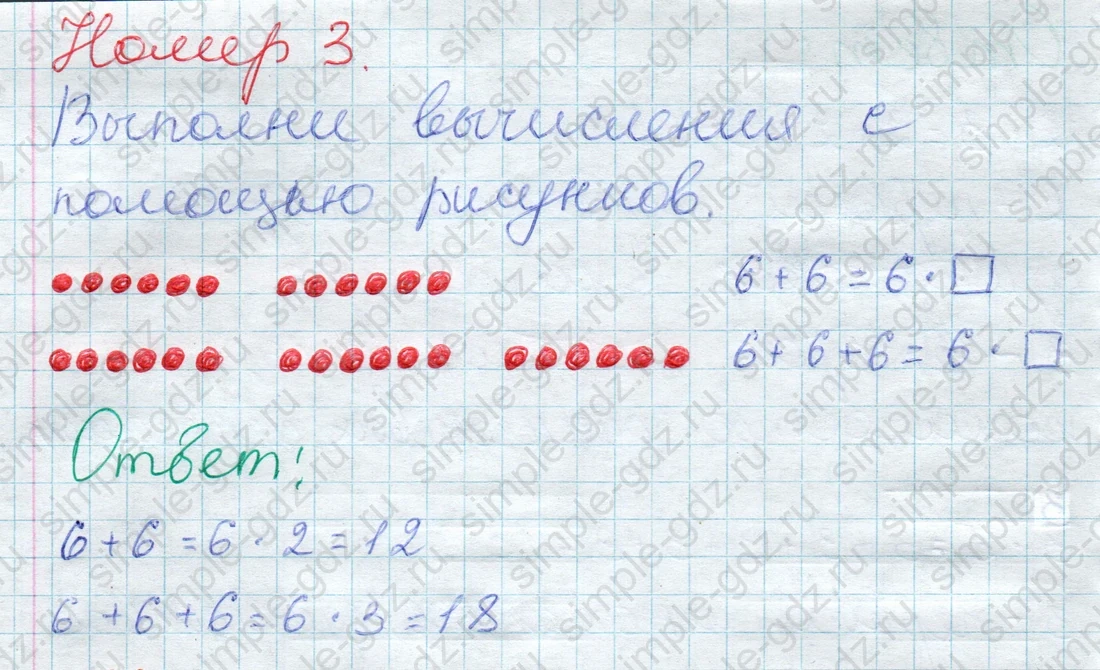 Номер 3.
Выполни вычисления с
помощью рисунков.
6 + 6 = 6 · □
6 + 6 + 6 = 6 · □
Ответ:
6 + 6 = 6 · 2 = 12
6 + 6 + 6 = 6 · 3 = 18
simple-gdz.ru